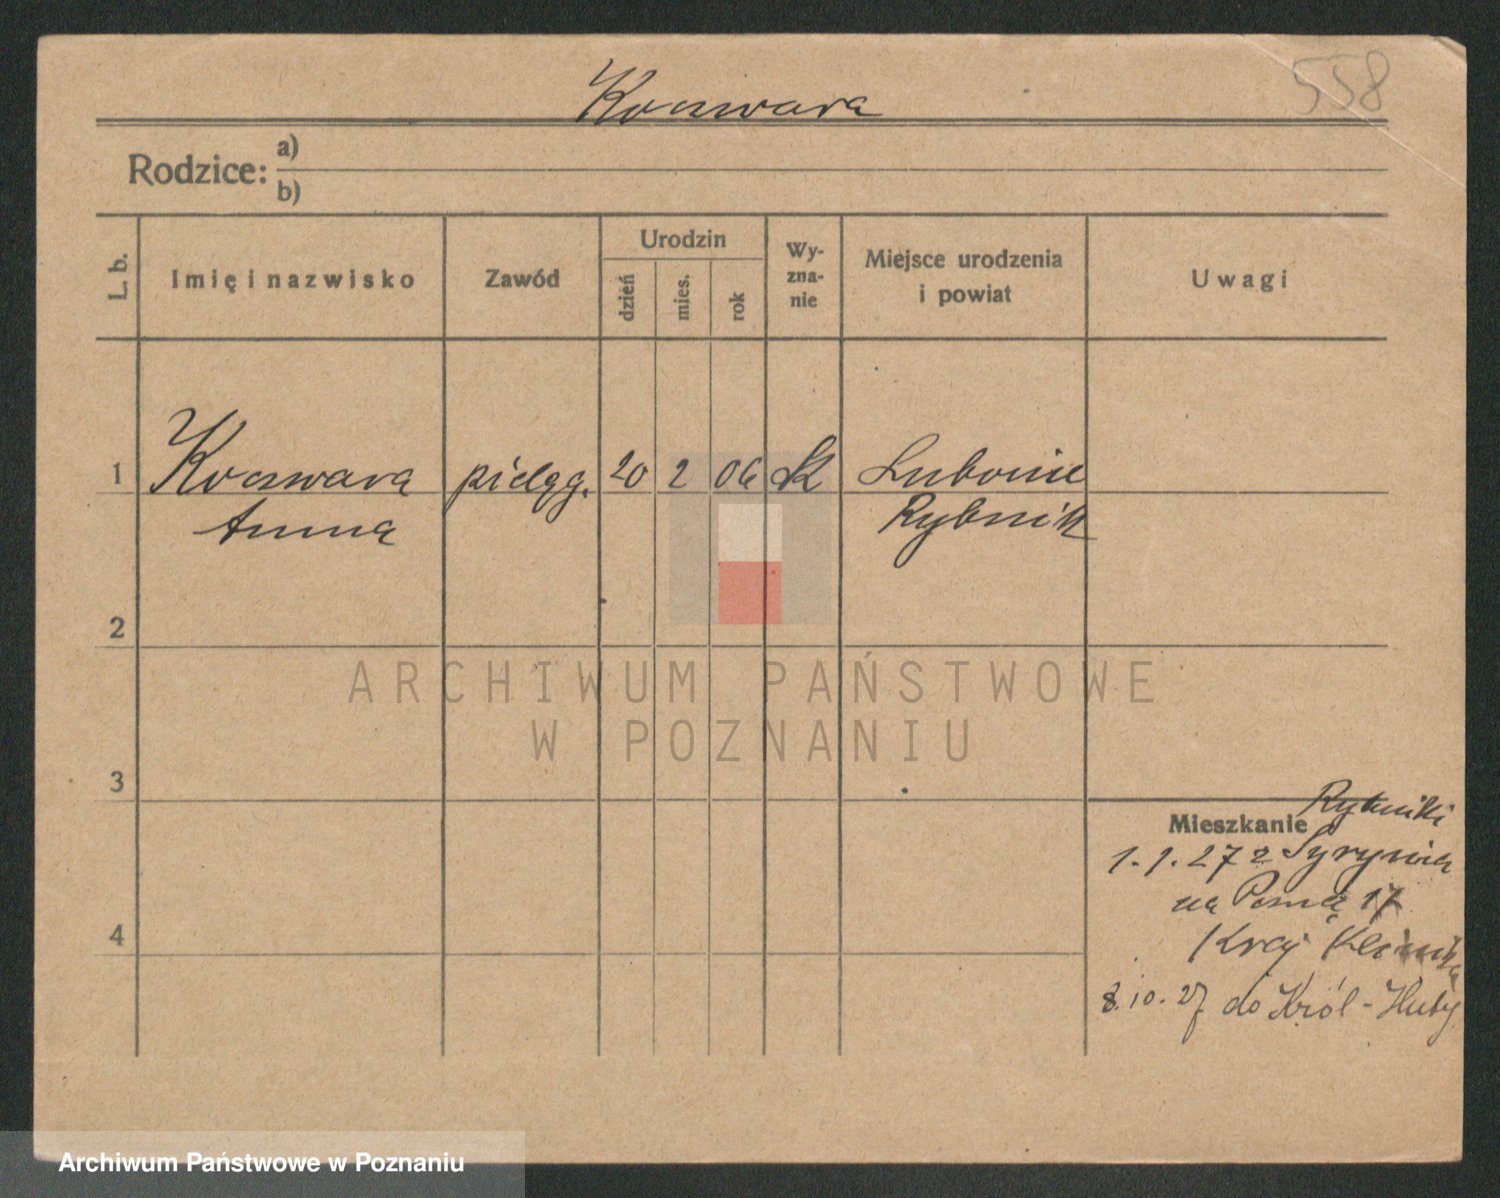 Koczwara
558
Rodzice: a)
b)
L. b.
Imię i nazwisko
Zawód
Urodzin
dzień
mies.
rok
Wy-
zna-
nie
Miejsce urodzenia
i powiat
Uwagi
1
Koczwara
Anna
pielęg.
20
2
06
k
Lubomie
Rybnik
2
3
4
Mieszkanie
1.9.27 z Syrynia
na
17
Kraj
8.10.27 do Król-Huty
ARCHIWUM PAŃSTWOWE
W POZNANIU
Archiwum Państwowe w Poznaniu